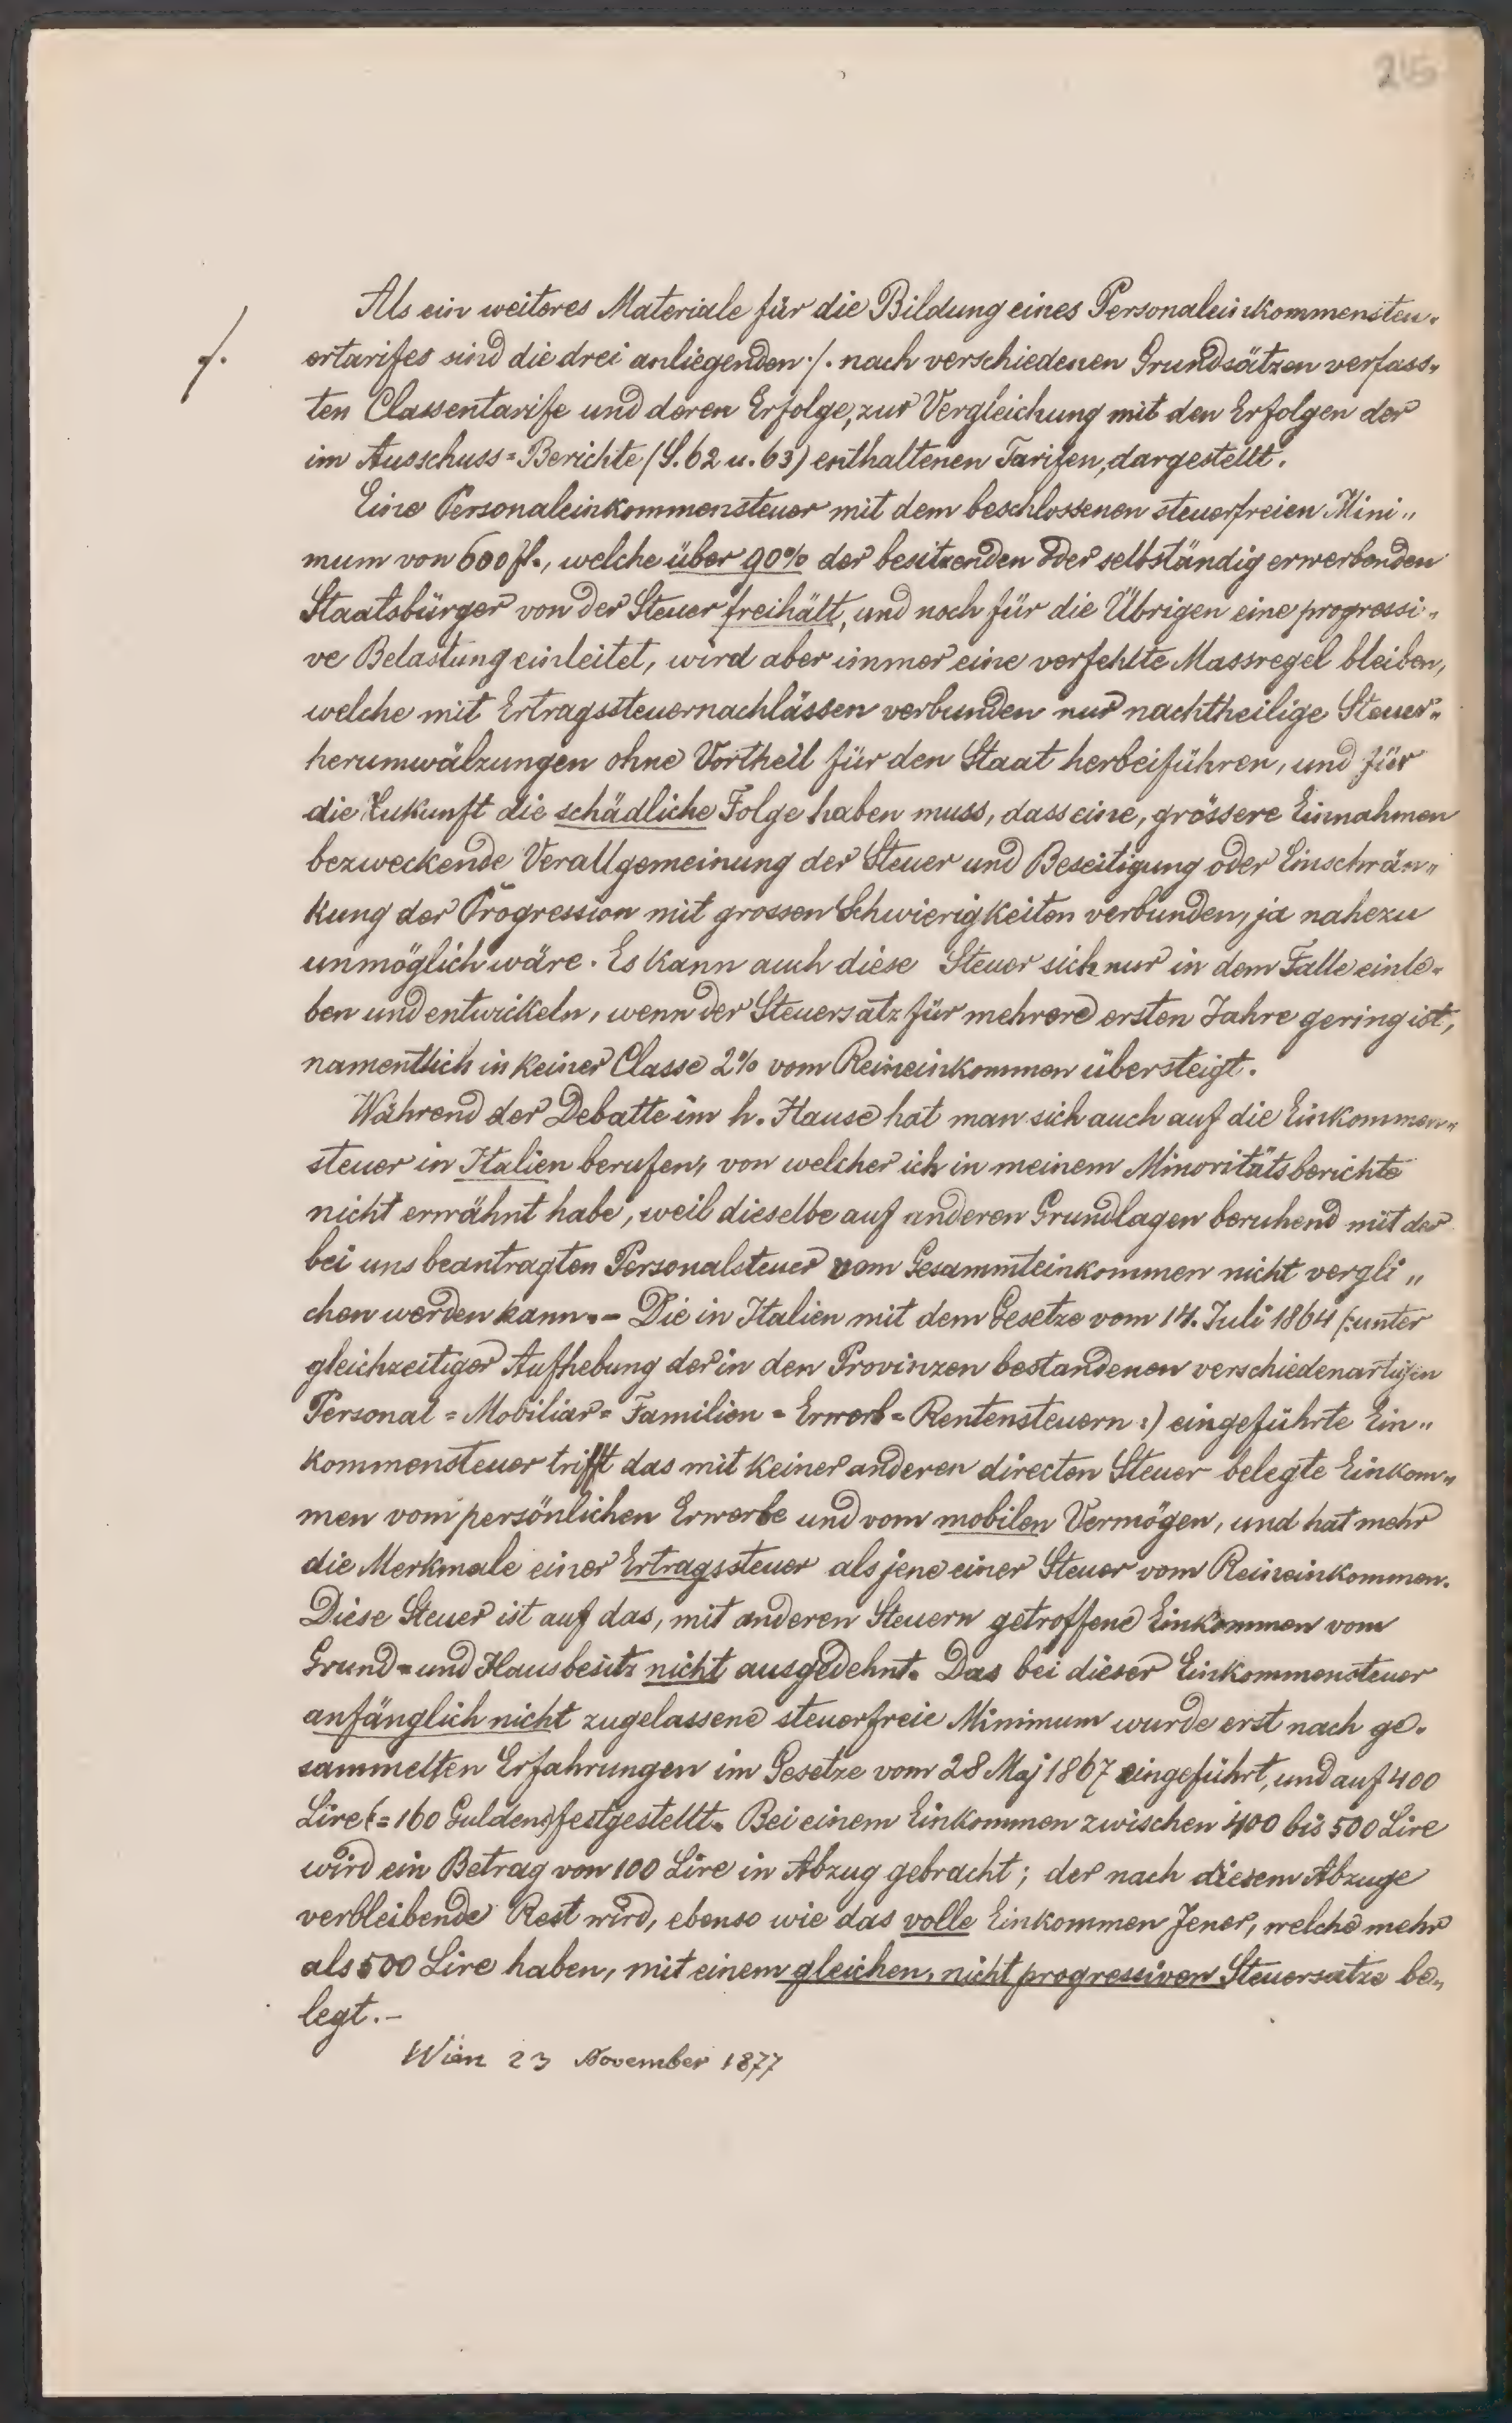 215
Als ein weiteres Materiale für die Bildung eines Personaleinkommensteu„
./.
ertarifes sind die drei anliegenden ./. nach verschiedenen Grundsätzen verfass„
ten Classentarife und deren Erfolge, zur Vergleichung mit den Erfolgen der
im Ausschuss=Berichte (S. 62 u. 63) enthaltenen Tarifen, dargestellt.
Eine Personaleinkommensteuer mit dem beschlossenen steuerfreien Mini„
mum von 600 fl., welche über 90% der besitzenden oder selbständig erwerbenden
Staatsbürger von der Steuer freihält, und noch für die Übrigen eine progressi„
ve Belastung einleitet, wird aber immer eine verfehlte Massregel bleiben,
welche mit Ertragssteuernachlässen verbunden nur nachtheilige Steuer„
herumwälzungen ohne Vortheil für den Staat herbeiführen, und für
die Zukunft die schädliche Folge haben muss, dass eine, grössere Einnahmen
bezweckende Verallgemeinung der Steuer und Beseitigung oder Einschrän„
kung der Progression mit grossen Schwierigkeiten verbunden, ja nahezu
unmöglich wäre. Es kann auch diese Steuer sich nur in dem Falle einle„
ben und entwickeln, wenn der Steuersatz für mehrere ersten Jahre gering ist,
namentlich in keiner Classe 2% vom Reineinkommen übersteigt.
Während der Debatte im h. Hause hat man sich auch auf die Einkommen„
steuer in Italien berufen, von welcher ich in meinem Minoritätsberichte
nicht erwähnt habe, weil dieselbe auf anderen Grundlagen beruhend mit der
bei uns beantragten Personalsteuer vom Gesammteinkommen nicht vergli„
chen werden kann. – Die in Italien mit dem Gesetze vom 14. Juli 1864 (:unter
gleichzeitiger Aufhebung der in den Provinzen bestandenen verschiedenartigen
Personal=Mobiliar=Familien=Erwerb=Rentensteuern:) eingeführte Ein„
kommensteuer trifft das mit keiner anderen directen Steuer belegte Einkom„
men vom persönlichen Erwerbe und vom mobilen Vermögen, und hat mehr
die Merkmale einer Ertragssteuer als jene einer Steuer vom Reineinkommen.
Diese Steuer ist auf das, mit anderen Steuern getroffene Einkommen vom
Grund=und Hausbesitz nicht ausgedehnt. Das bei dieser Einkommensteuer
anfänglich nicht zugelassene steuerfreie Minimum wurde erst nach ge„
sammelten Erfahrungen im Gesetze vom 28 Maj 1867 eingeführt, und auf 400
Lire (=160 Gulden) festgestellt. Bei einem Einkommen zwischen 400 bis 500 Lire
wird ein Betrag von 100 Lire in Abzug gebracht; der nach diesem Abzuge
verbleibende Rest wird, ebenso wie das volle Einkommen Jener, welche mehr
als 500 Lire haben, mit einem gleichen, nicht progressiven Steuersatze be„
legt. –
Wien 23 November 1877